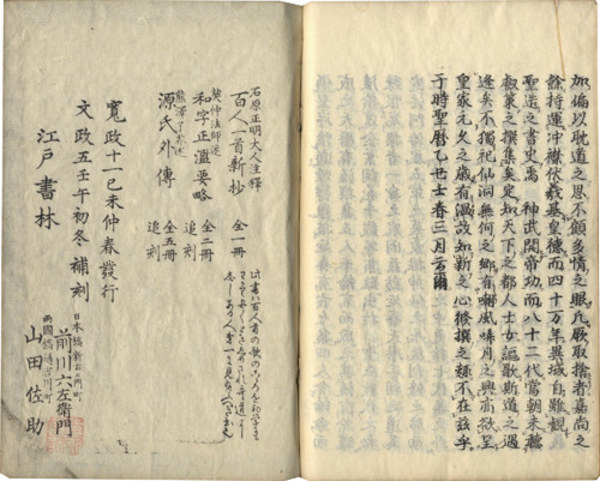 加偏以耽道之思不顧多情之眼凡厥取捨者嘉尚之
餘特運冲襟伏羲基皇德而四十万年異域自雖観
聖造之書史焉　神武開帝功而八十二代當朝未聽
叡策之撰集矣定知天下之都人士女謳歌斯道之遇
逢矣不獨記仙洞無何之郷有嘲風哢月之興亦欲呈
皇家元久之歳有温故知新之心修撰之趣不在茲乎
于時聖暦乙丑三春三月云爾
石原正明大人注釋
百人一首新抄　全一冊
契仲法師述
和字正濫要略　全二冊 追刻
熊澤了介述
源氏外傳　全五冊 追刻
寛政十一己未仲春發行
文政五壬午初冬補刻
江戸書林
日本橋新右衛門町
前川六左衛門
両國橋通吉川町
山田佐助